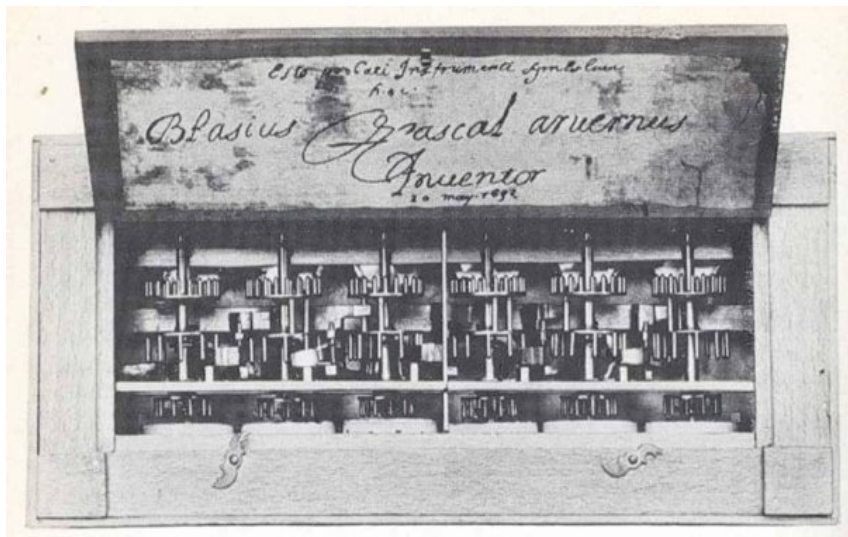 Esto probati Instrumenti Symbolum
hoc.
Blasius Pascal aruernus
Inuentor
20 may. 1652